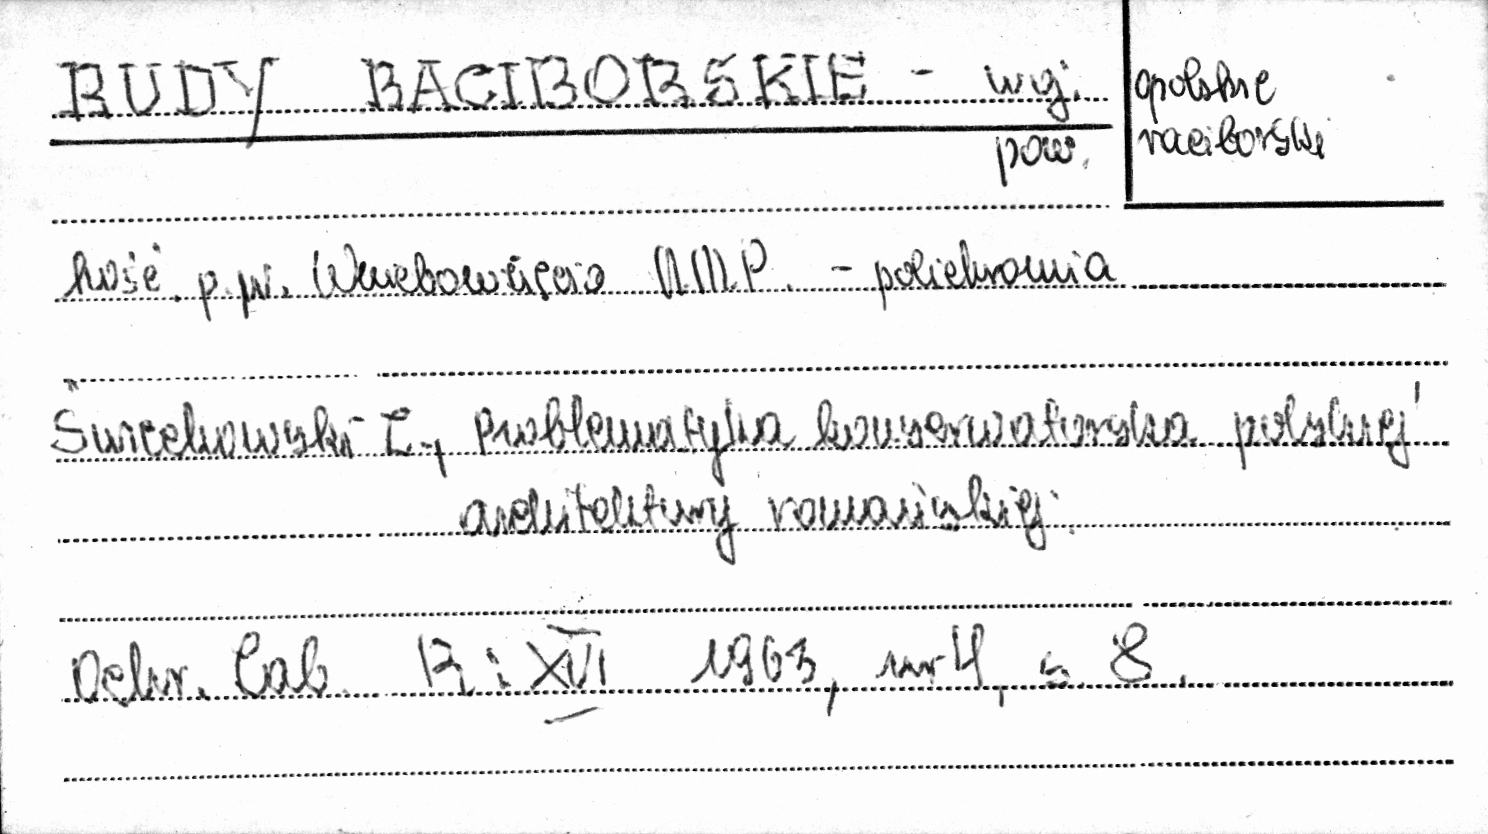 RUDY RACIBORSKIE - woj. opolskie
pow. raciborski
kość. p.w. Wniebowzięcia NMP. - polichromia
Świechowski Z., Problematyka konserwatorska polskiej
architektury romańskiej.
Ochr. Zab. R: XVI 1963, nr 4, s. 8.